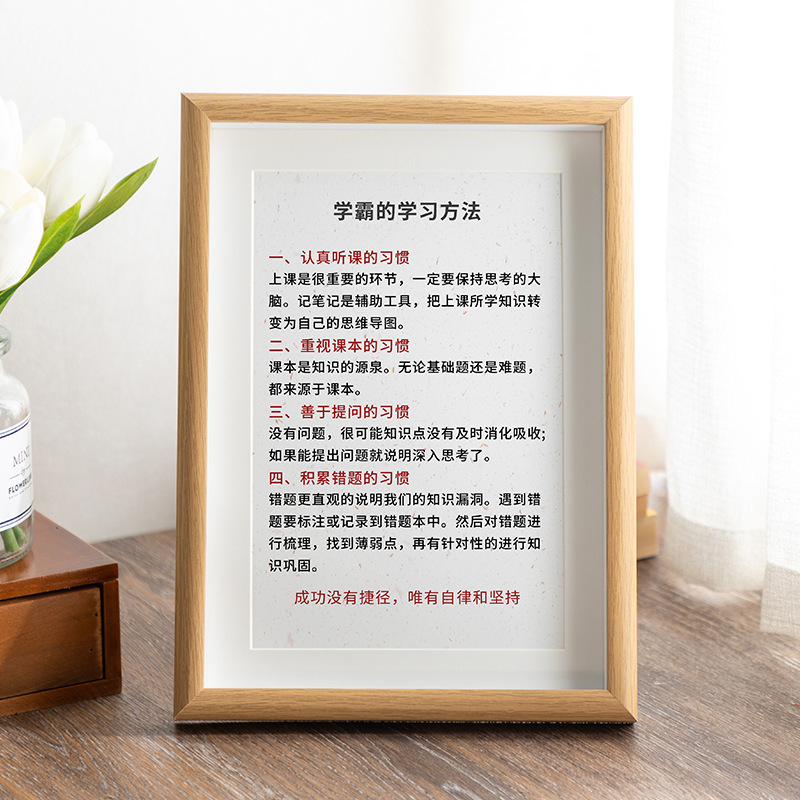 学霸的学习方法
一、认真听课的习惯
上课是很重要的环节，一定要保持思考的大
脑。记笔记是辅助工具，把上课所学知识转
变为自己的思维导图。
二、重视课本的习惯
课本是知识的源泉。无论基础题还是难题，
都来源于课本。
三、善于提问的习惯
没有问题，很可能知识点没有及时消化吸收；
如果能提出问题就说明深入思考了。
四、积累错题的习惯
错题更直观的说明我们的知识漏洞。遇到错
题要标注或记录到错题本中。然后对错题进
行梳理，找到薄弱点，再有针对性的进行知
识巩固。
成功没有捷径，唯有自律和坚持